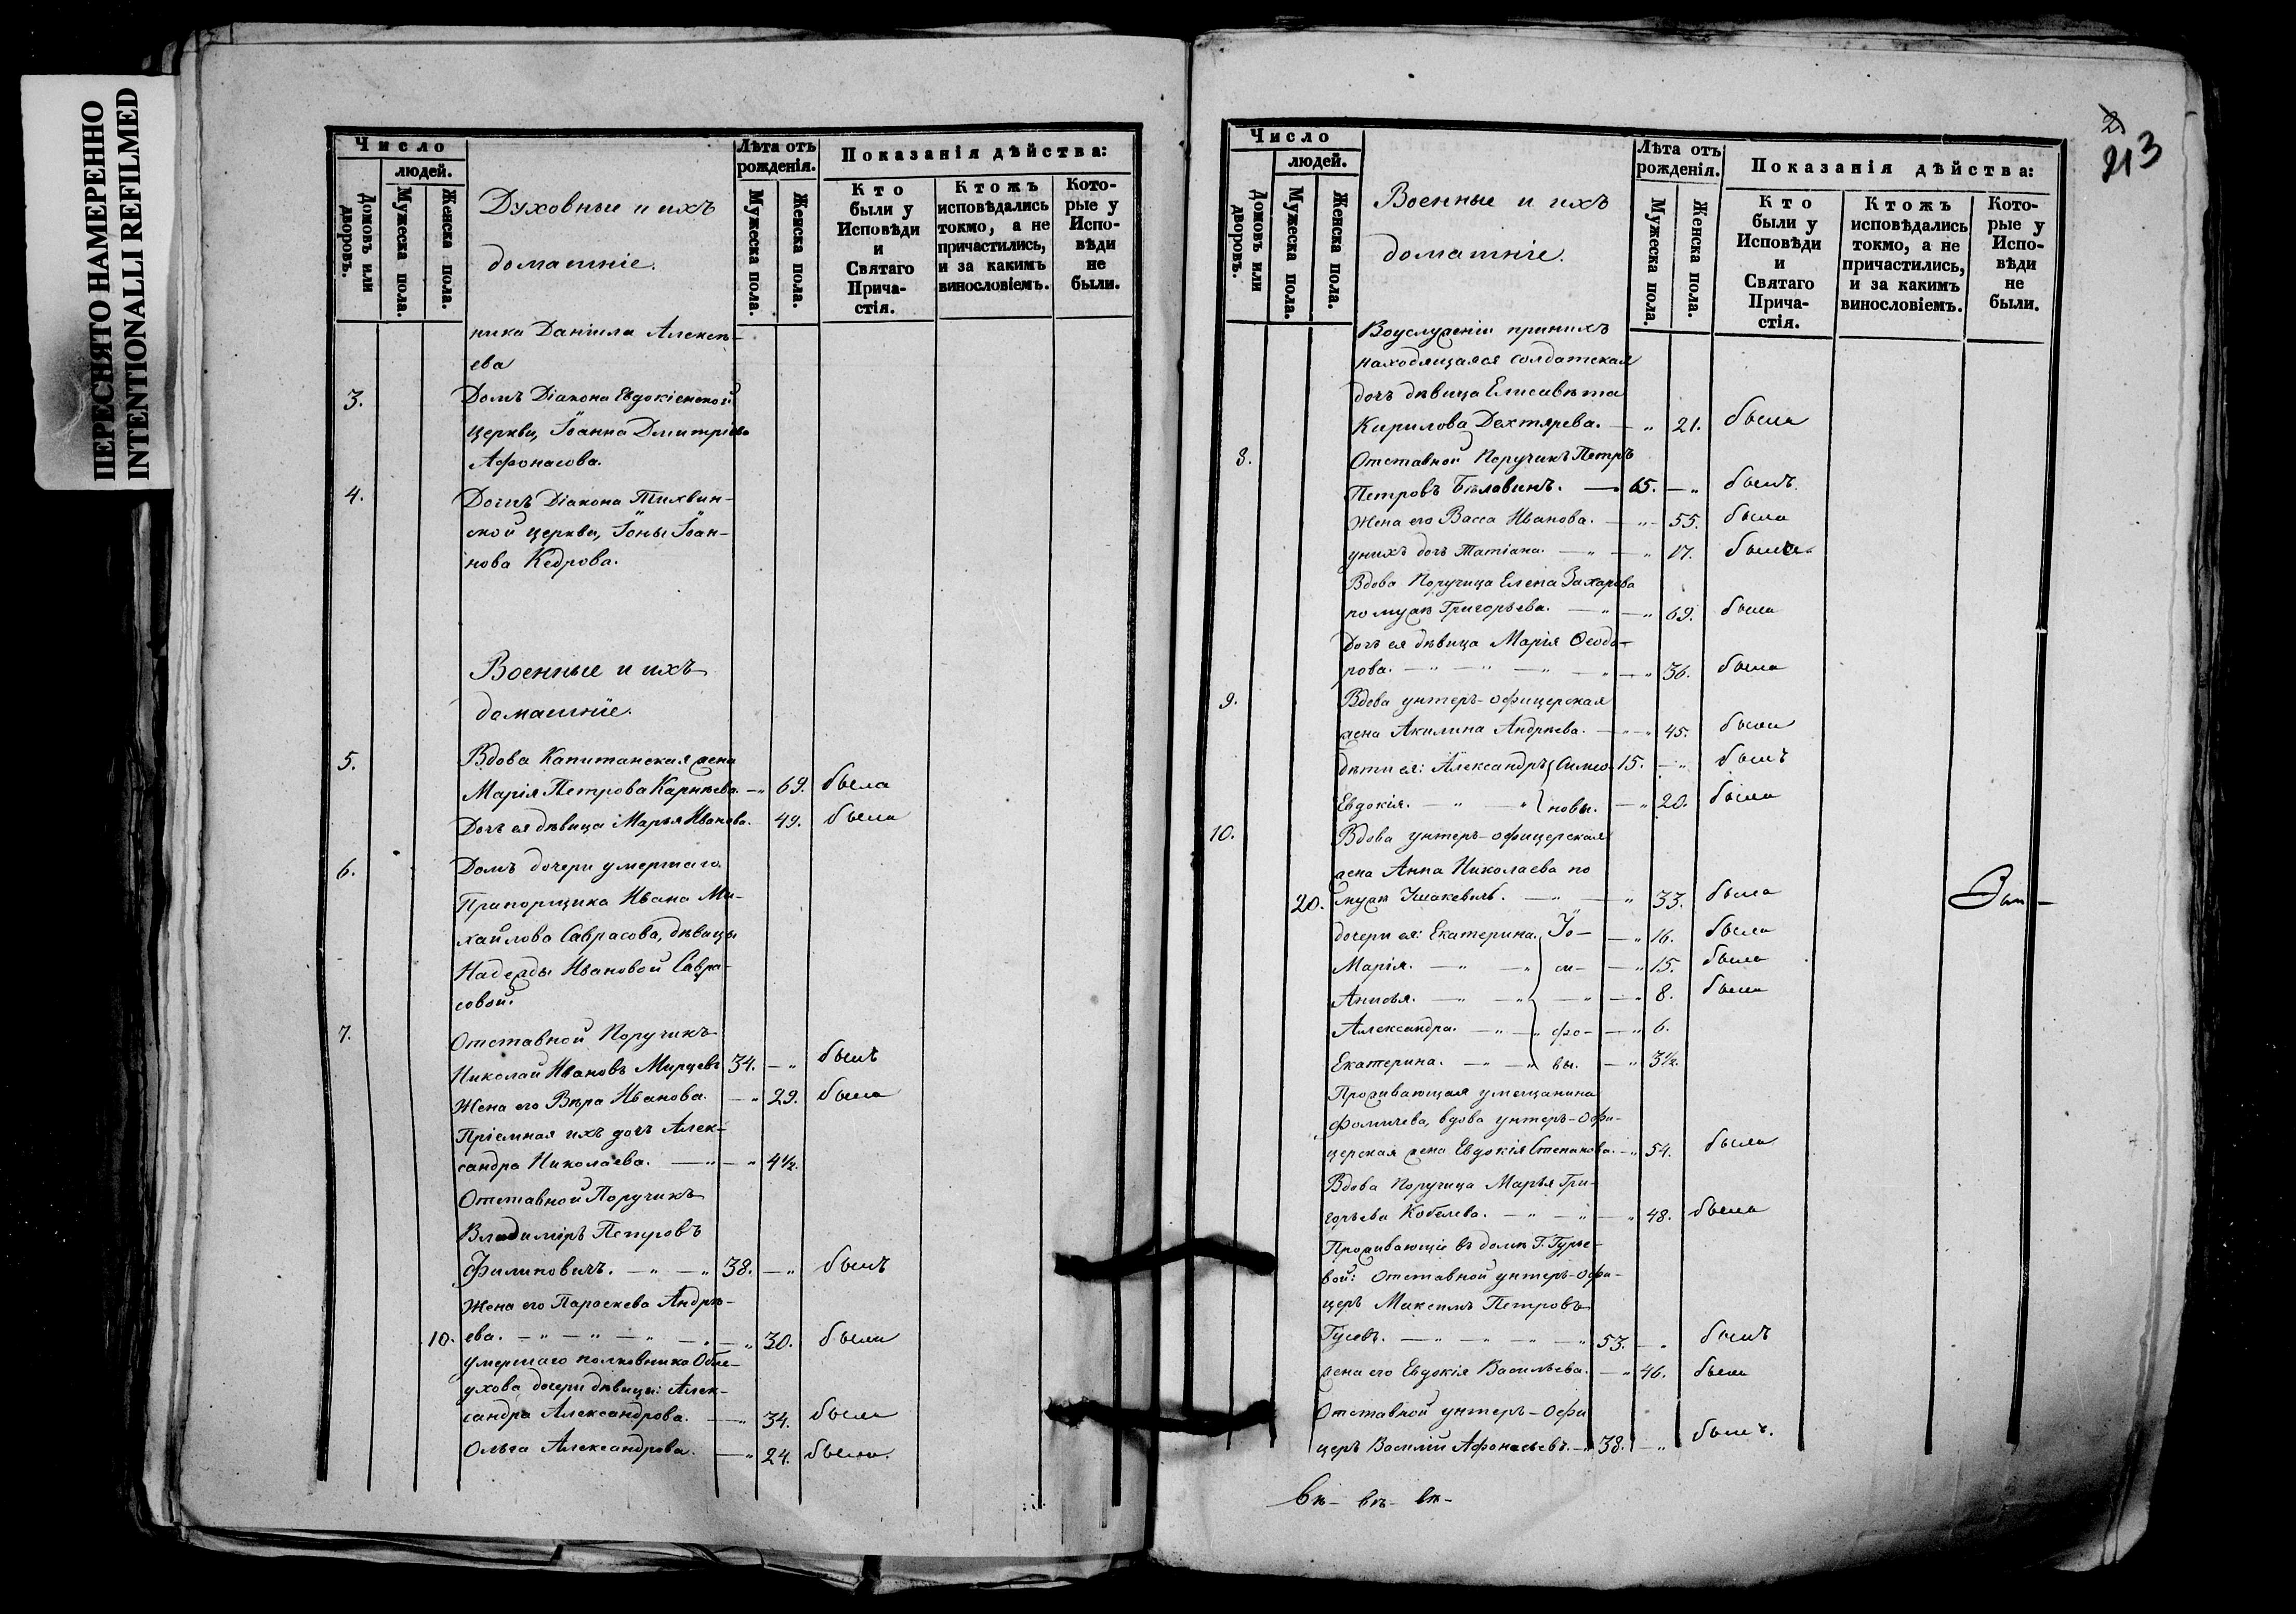 ПЕРЕСНЯТО НАМЕРЕННО
INTENTIONALLI REFILMED
Число
людей.
Домовъ или дворовъ.
Мужеска пола.
Женска пола.
Духовные и ихъ
домашніе.
Лѣта отъ рожденія.
Мужеска пола.
Женска пола.
Показанія дѣйства:
Кто были у Исповѣди и Святаго Прича-стія.
Ктожъ исповѣдались токмо, а не причастились, и за какимъ винословіемъ.
Кото-рые у Испо-вѣди не были.
ника Даніила Алексѣ-
ева
3. Домъ Діакона Евдокіенской
церкви, Іоанна Дмитріева
Афонасова.
4. Домъ Діакона Тихвин-
ской церкви, Іоны Іоан-
нова Кедрова.
Военные и ихъ
домашніе.
5. Вдова Капитанская жена
Марія Петрова Карнѣева. — „ 69. была
Дочь ея дѣвица Марья Иванова. 49. была
6. Домъ дочери умершаго
Прапорщика Ивана Ми-
хайлова Саврасова, дѣвицы
Надежды Ивановой Савра-
совой.
7. Отставной Поручикъ
Николай Ивановъ 34. — „ былъ
Жена его Вѣра Иванова. — „ 29. была
Пріемная ихъ дочь Алек-
сандра Николаева. — „ — „ 4½.
Отставной Поручикъ
Владиміръ Петровъ
Филиповичъ. — „ — „ 38. — „ былъ
Жена его Параскева Андрѣ-
10. ева. — „ — „ — „ — „ 30. была
умершаго полковника
ухова дочери дѣвицы: Алек-
сандра Александрова. — „ 34. была
Ольга Александрова. — „ 24. была.
213
Число
людей.
Домовъ или дворовъ.
Мужеска пола.
Женска пола.
Военные и ихъ
домашніе.
Лѣта отъ рожденія.
Мужеска пола.
Женска пола.
Показанія дѣйства:
Кто были у Исповѣди и Святаго Прича-стія.
Ктожъ исповѣдались токмо, а не причастились, и за какимъ винословіемъ.
Кото-рые у Испо-вѣди не были.
Воуслуженіи принихъ
находящаяся солдатская
дочь дѣвица Елисавѣта
Кирилова Дехтярева. — „ 21. была
8. Отставной Поручикъ Петръ
Петровъ Бѣлавинъ. — 65. — „ былъ.
Жена его Васса Иванова. — „ — 55. была
унихъ дочь Татіана. — „ — „ 17. была
Вдова Поручица Елена Захарова
по мужѣ Григорьева. — „ — „ 69. была
Дочь ея дѣвица Марія Ѳеодо-
рова. — „ — „ — „ — „ 36. была
9. Вдова унтеръ-офицерская
жена Акилина Андрѣева. — „ 45. была
дѣти ея: Александръ Симео- 15. — „ былъ
Евдокія. — „ — „ новы. — „ 20. была
10. Вдова унтеръ-офицерская
жена Анна Николаева по
20. мужѣ — „ — „ 33. была
дочери ея: Екатерина. Іо- — „ 16. была
Марія. — „ — „ си- — „ 15. была
Анисья. — „ — „ — „ — „ 8. была
Александра. — „ — „ фо- — „ 6.
Екатерина. — „ — „ вы. — „ 3½.
Проживающая умещанина
Фомичева, вдова унтеръ-офи-
церская жена Евдокія Степанова. — „ 54. была
Вдова Поручица Марья Гри-
горьева Кобелева. — „ — „ — „ 48. была
Проживающіе въ домѣ Г. Гурье-
вой: Отставной унтеръ-офи-
церъ Максимъ Петровъ
Гусевъ. — „ — „ — „ — „ 53. — „ былъ
жена его Евдокія Васильева. — „ 46. была
Отставной унтеръ-офи
церъ Василій Афонасьевъ. — „ 38. — „ былъ.